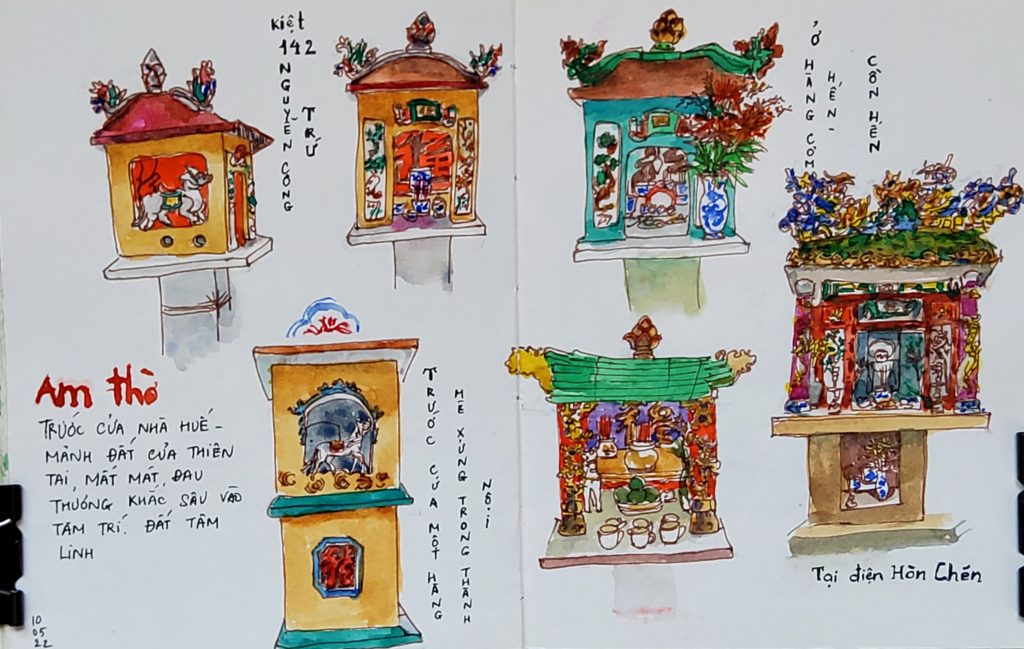 Kiệt
142
NGUYỄN CÔNG
TRỨ
Ở HÀNG CƠM
HẾN -
CỒN HẾN
Am thờ
TRƯỚC CỬA NHÀ HUẾ -
MẢNH ĐẤT CỦA THIÊN
TAI, MẤT MÁT, ĐAU
THƯƠNG KHẮC SÂU VÀO
TÂM TRÍ. ĐẤT TÂM
LINH
TRƯỚC CỬA MỘT HÀNG
MÈ XỬNG TRONG THÀNH
NỘI
Tại điện Hòn Chén
10
05
22